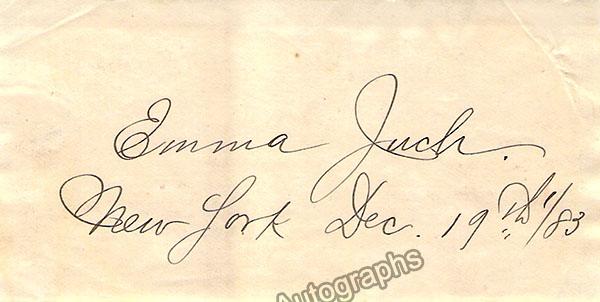 Emma Juch.
New York Dec. 19th/83
Autographs